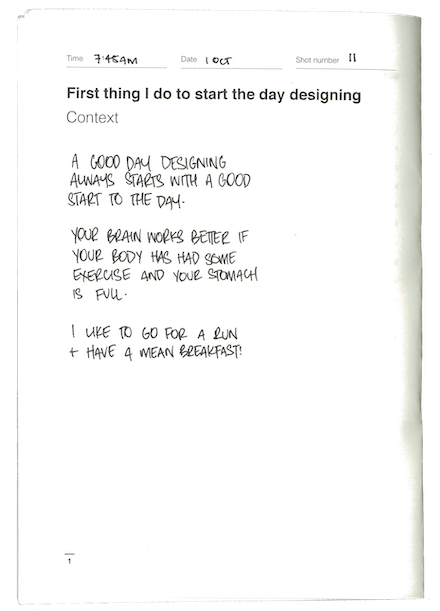 Time 7:45AM Date 1 OCT Shot number 11
First thing I do to start the day designing
Context
A GOOD DAY DESIGNING
ALWAYS STARTS WITH A GOOD
START TO THE DAY.
YOUR BRAIN WORKS BETTER IF
YOUR BODY HAS HAD SOME
EXERCISE AND YOUR STOMACH
IS FULL.
I LIKE TO GO FOR A RUN
+ HAVE A MEAN BREAKFAST!
1